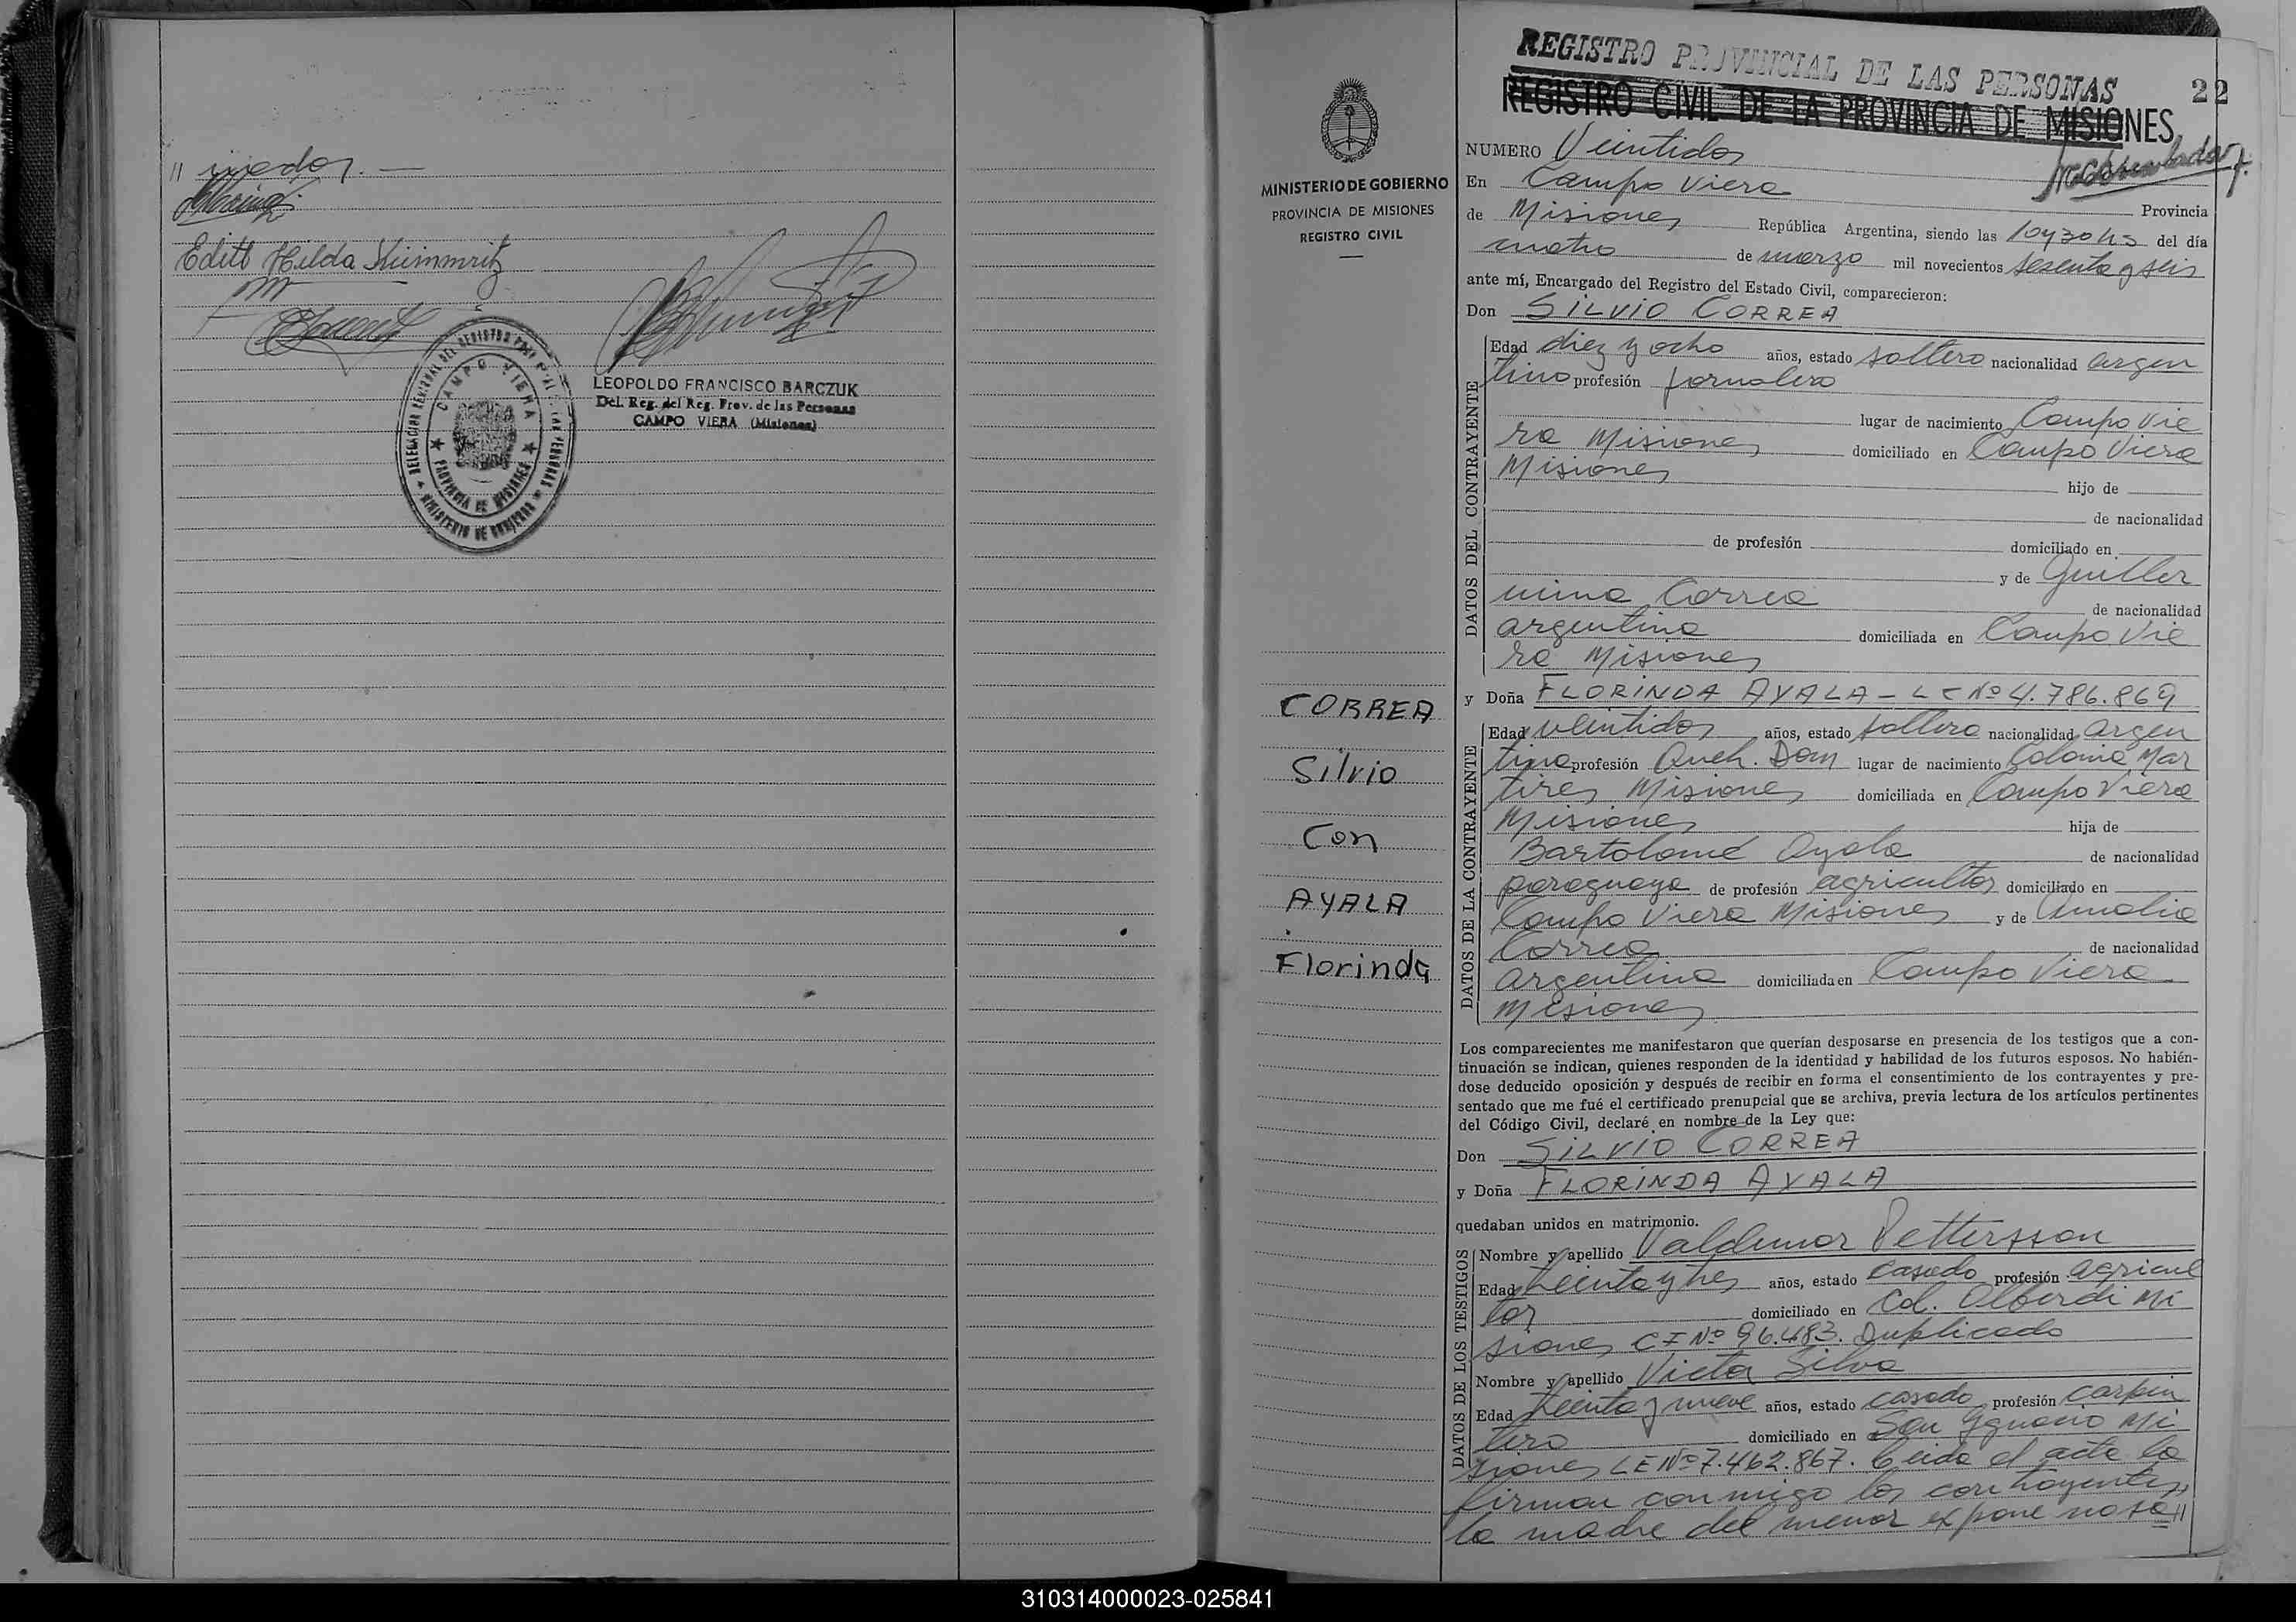 // inados.—
Edith Hilda Kümmritz
DELEGACION REGIONAL DEL REGISTRO PROVINCIAL DE LAS PERSONAS
CAMPO VIERA
PROVINCIA DE MISIONES
MINISTERIO DE GOBIERNO
LEOPOLDO FRANCISCO BARCZUK
Del. Reg. del Reg. Prov. de las Personas
CAMPO VIERA (Misiones)
MINISTERIO DE GOBIERNO
PROVINCIA DE MISIONES
REGISTRO CIVIL
CORREA
Silvio
Con
AYALA
Florinda
REGISTRO PROVINCIAL DE LAS PERSONAS
22
REGISTRO CIVIL DE LA PROVINCIA DE MISIONES
NUMERO Veintidos
En Campo Viera
Provincia
de Misiones República Argentina, siendo las 10y30hs del día
cuatro de marzo mil novecientos sesenta y seis
ante mí, Encargado del Registro del Estado Civil, comparecieron:
Don SILVIO CORREA
DATOS DEL CONTRAYENTE
Edad diez y ocho años, estado soltero nacionalidad argen
tino profesión jornalero
lugar de nacimiento Campo Vie
ra Misiones domiciliado en Campo Viera
Misiones hijo de
de nacionalidad
de profesión domiciliado en
y de Guiller
mina Correa de nacionalidad
argentina domiciliada en Campo Vie
ra Misiones
y Doña FLORINDA AYALA - LC Nº 4.786.869
DATOS DE LA CONTRAYENTE
Edad veintidos años, estado soltera nacionalidad argen
tina profesión Queh. Dom lugar de nacimiento Colonia Mar
tires Misiones domiciliada en Campo Viera
Misiones hija de
Bartolomé Ayala de nacionalidad
paraguaya de profesión agricultor domiciliado en
Campo Viera Misiones y de Amalia
Correa de nacionalidad
argentina domiciliada en Campo Viera
Misiones
Los comparecientes me manifestaron que querían desposarse en presencia de los testigos que a con-
tinuación se indican, quienes responden de la identidad y habilidad de los futuros esposos. No habién-
dose deducido oposición y después de recibir en forma el consentimiento de los contrayentes y pre-
sentado que me fué el certificado prenupcial que se archiva, previa lectura de los artículos pertinentes
del Código Civil, declaré en nombre de la Ley que:
Don SILVIO CORREA
y Doña FLORINDA AYALA
quedaban unidos en matrimonio.
DATOS DE LOS TESTIGOS
Nombre y apellido Valdemor Pettersson
Edad treinta y tres años, estado casado profesión agricul
tor domiciliado en Col. Alberdi Mi
siones CI Nº 96.483. Duplicado
Nombre y apellido Victor Silva
Edad treinta y nueve años, estado casado profesión carpin
tero domiciliado en San Ygnacio Mi
siones LE Nº 7.462.867. Leida el acta la
firman conmigo los contrayentes,
la madre del menor expone no sa//
310314000023-025841